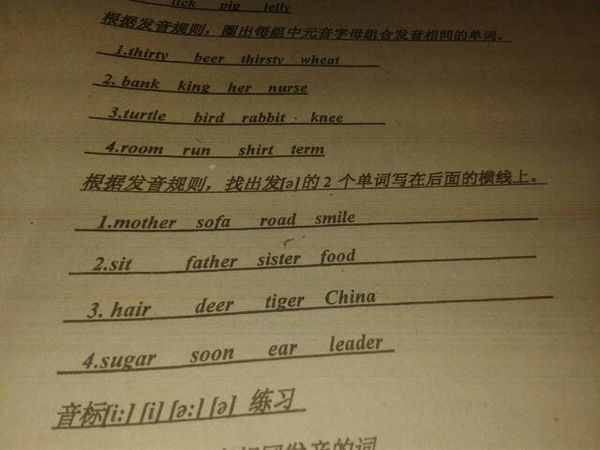 lick pig jelly
根据发音规则，圈出每组中元音字母组合发音相同的单词。
1.thirty beer thirsty wheat
2. bank king her nurse
3.turtle bird rabbit knee
4.room run shirt term
根据发音规则，找出发[ə]的 2 个单词写在后面的横线上。
1.mother sofa road smile
2.sit father sister food
3. hair deer tiger China
4.sugar soon ear leader
音标[i:] [i] [ə:] [ə] 练习
相同发音的词